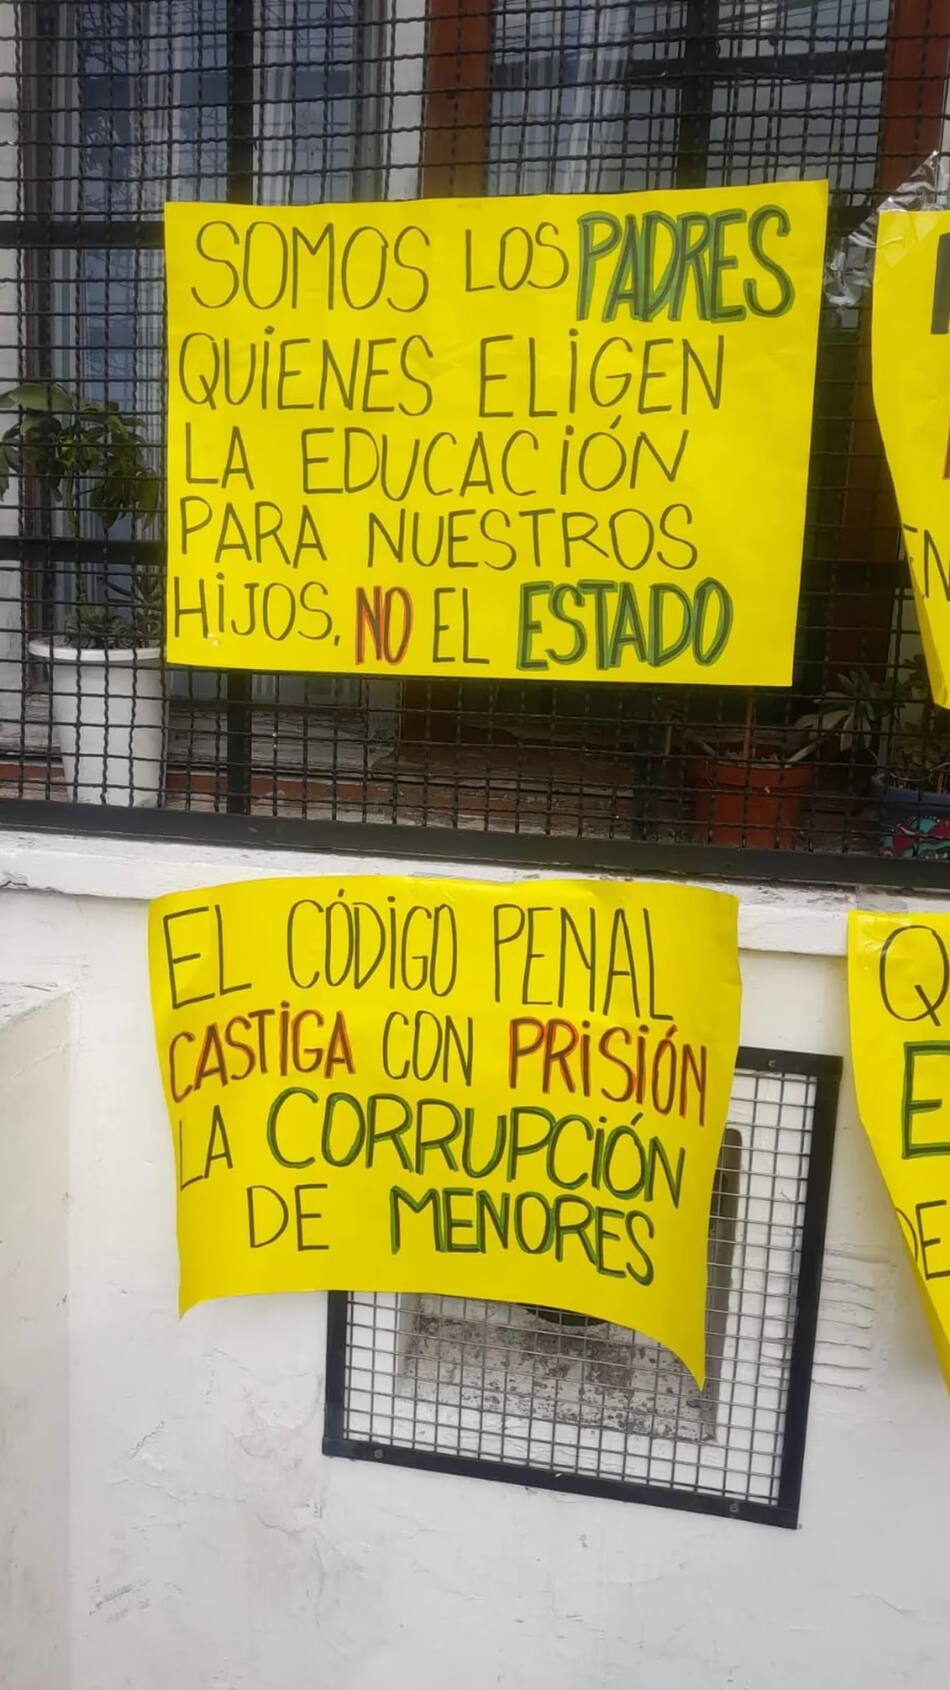 SOMOS LOS PADRES
QUIENES ELIGEN
LA EDUCACIÓN
PARA NUESTROS
HIJOS, NO EL ESTADO
EL CÓDIGO PENAL
CASTIGA CON PRISIÓN
LA CORRUPCIÓN
DE MENORES